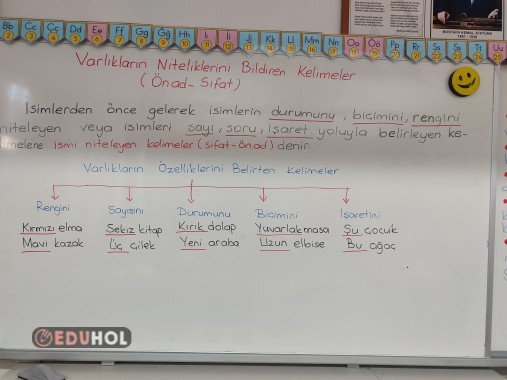 Bb Cc Çç Dd Ee Ff Gg Ğğ Hh Iı İi Jj Kk Ll Mm Nn Oo Öö Pp Rr Ss Şş Tt Uu
2 3 4 5 6 7 8 9 10 11 12 13 14 15 16 17 18 19 20 21 22 23 24 25
MUSTAFA KEMAL ATATÜRK
1881 - 1938
Varlıkların Niteliklerini Bildiren Kelimeler
(Önad- Sıfat)
İsimlerden önce gelerek isimlerin durumunu, biçimini, rengini
niteleyen veya isimleri sayı, soru, işaret yoluyla belirleyen ke-
limelere ismi niteleyen kelimeler (sıfat-önad) denir.
Varlıkların Özelliklerini Belirten Kelimeler
Rengini Sayısını Durumunu Biçimini İşaretini
Kırmızı elma Sekiz kitap Kırık dolap Yuvarlak masa Şu çocuk
Mavi kazak Üç çilek Yeni araba Uzun elbise Bu ağaç
EDUHOL